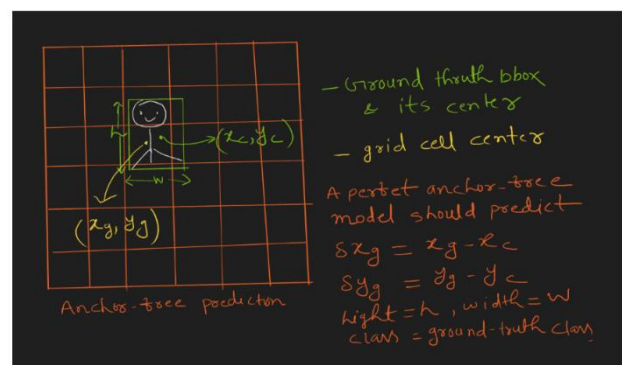 h
w
(xc, yc)
(xg, yg)
Anchor-free prediction
- Ground thruth bbox
& its center
- grid cell center
A perfet anchor-free
model should predict
δxg = xg - xc
δyg = yg - yc
hight = h, width = w
class = ground-truth class